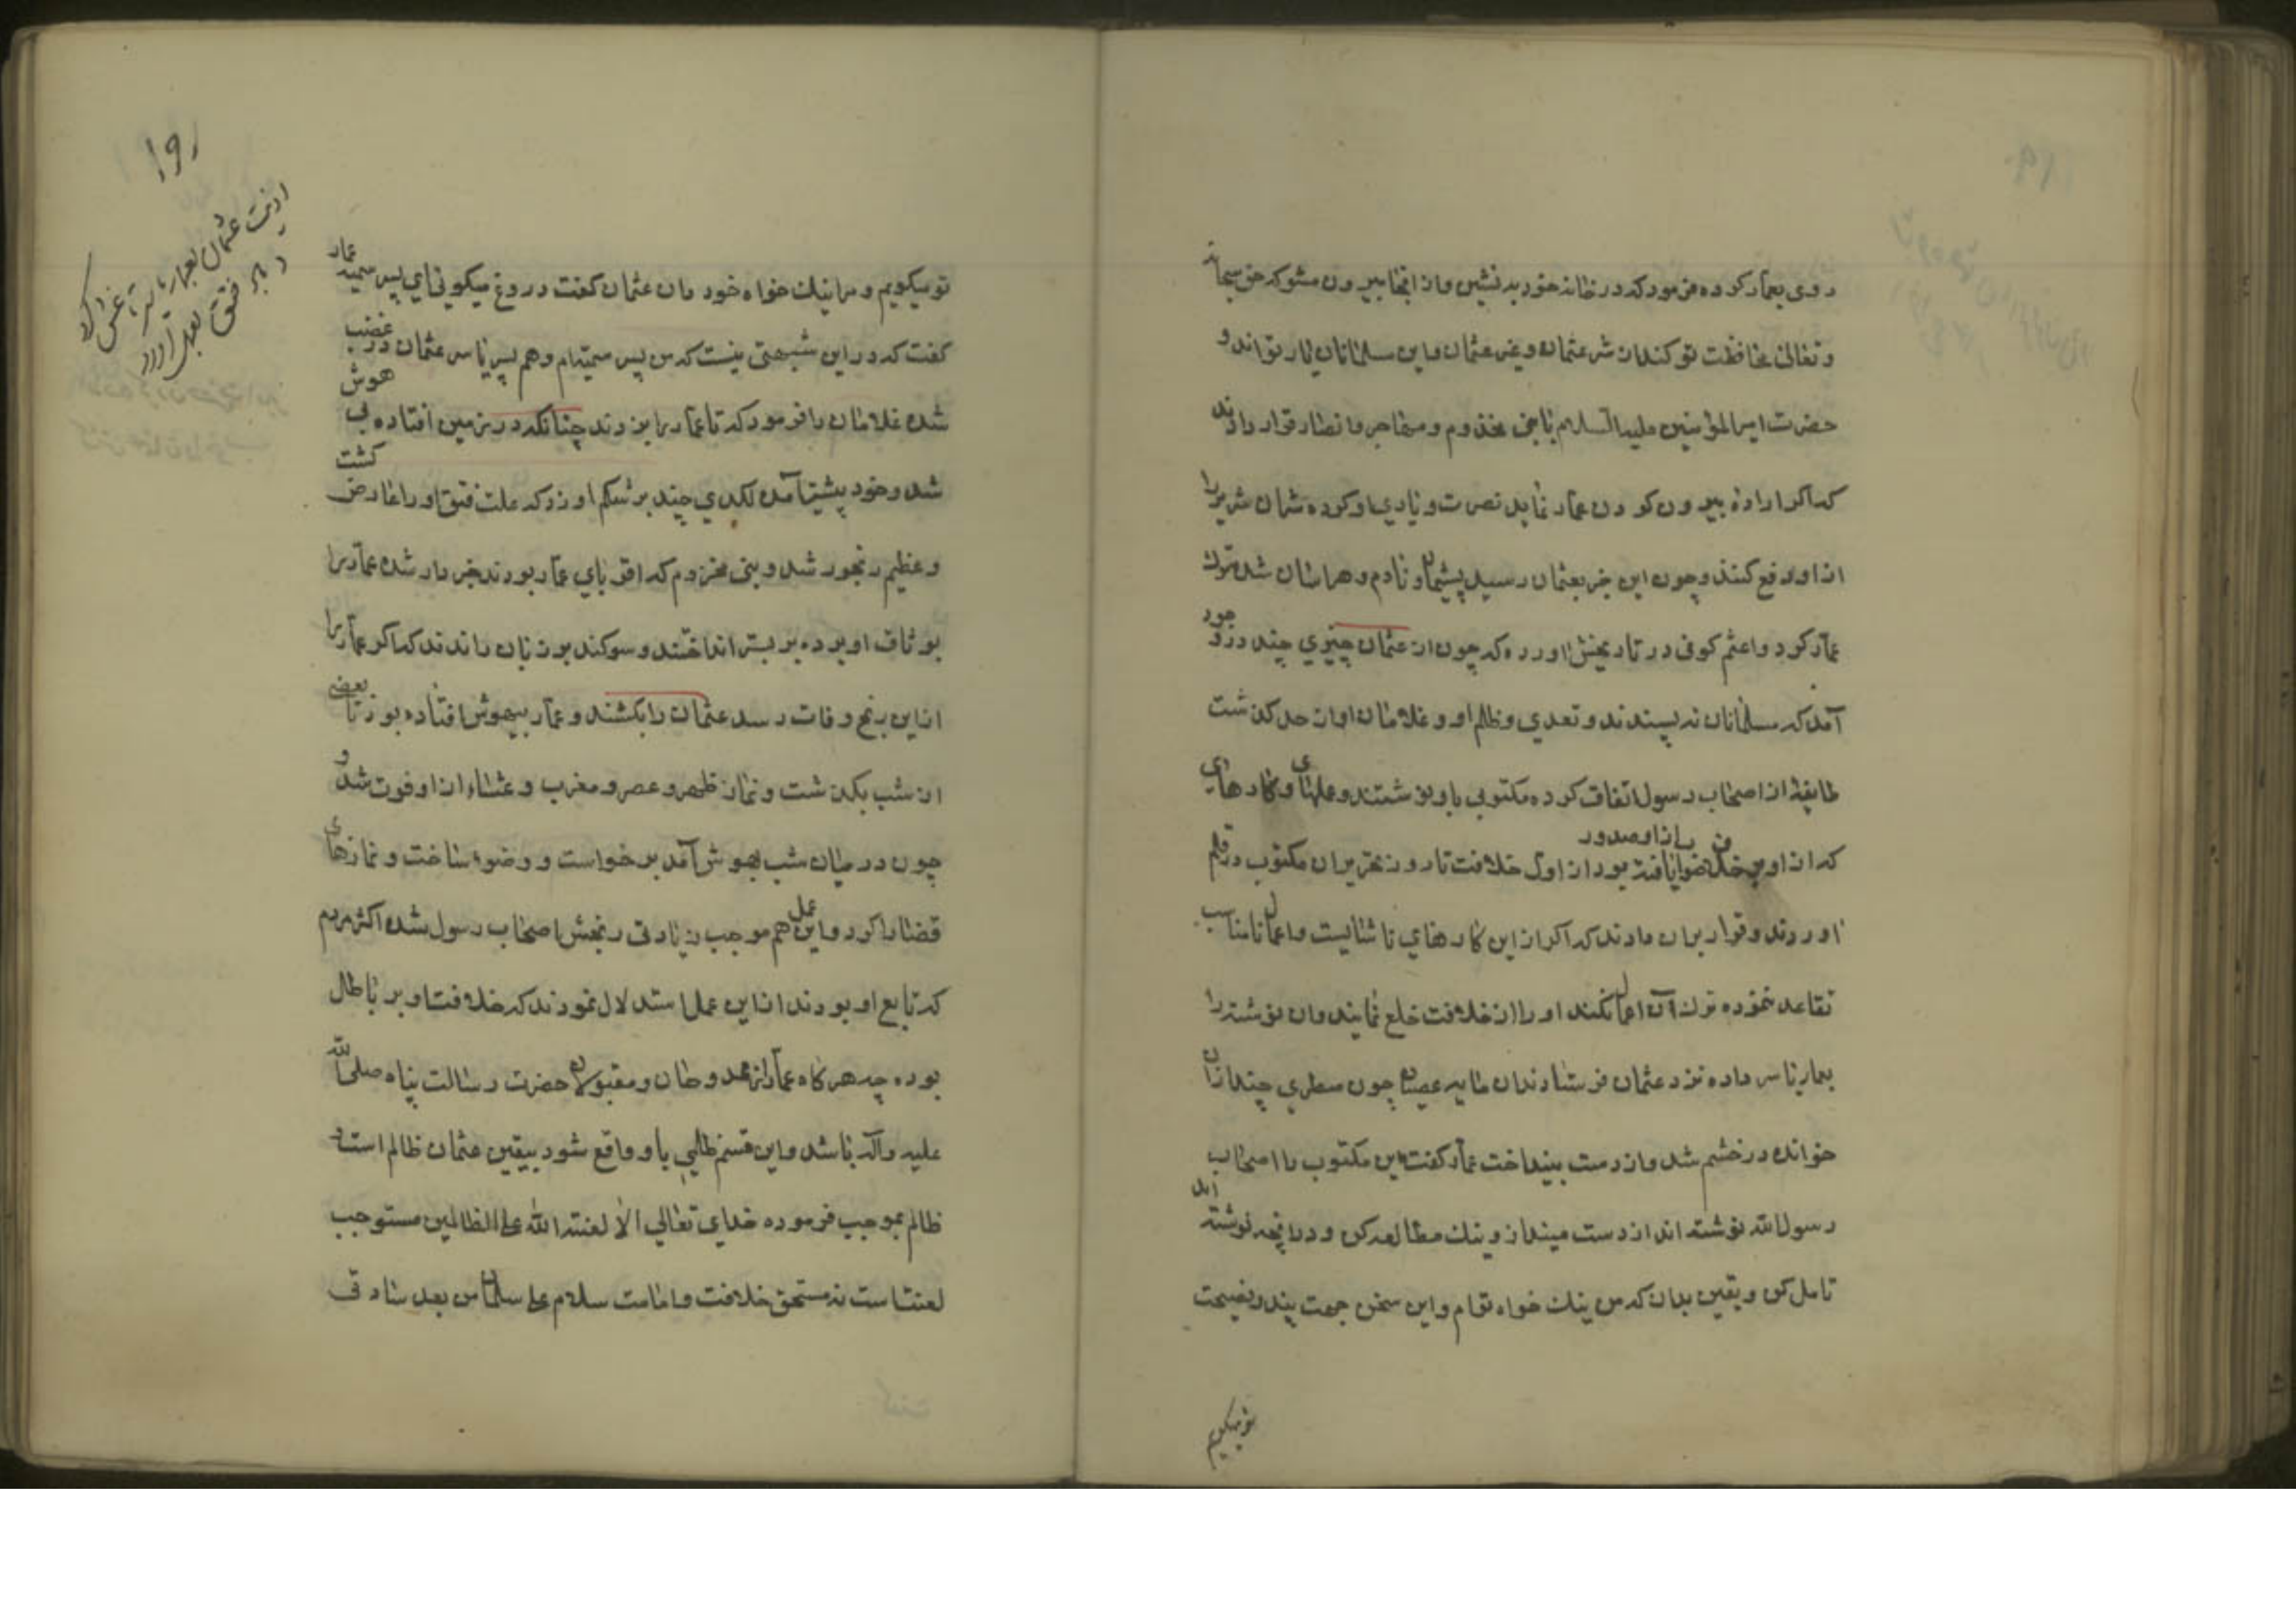 روی بعمار کرده فرمود که در خانه خود بنشین و از انجا بیرون مشو که حق سبحانه
و تعالی محافظت تو کند از شر عثمان و غیر عثمان و این سلمانان یار تواند و
حضرت امیرالمؤمنین علیه السلام با بنی مخذوم و مهاجر و انصار قرار دادند
که اکر اراده بیرون کردن عمار نماید نصرت و یاری او کرده شمان شریر را
از او دفع کنند و چون این خبر بعثمان رسید پشیمان و نادم و هراسان شد ترک
عمار کرد و اعثم کوفی در تاریخش اورده که چون از عثمان چیزی چند در وجود
آمد که مسلمانان نه پسندند و تعدی و ظلم او و غلامان او از حد کذشت
طایفهٔ از اصحاب رسول اتفاق کرده مکتوبی باو نوشتند و عملهای و کارهای
که از او بر خلاف صواب یا از او صدور یافته بود از اول خلافت تا روز تحریر ان مکتوب در قلم
اوردند و قرار بران دادند که اکر از این کارهای ناشایست و اعمال نامناسب
تقاعد ننموده ترک آن اعمال نکند او را از خلافت خلع نمایند و ان نوشته را
بعمار یاسر داده نزد عثمان فرستادند ان مایه عصیان چون سطری چند از ان
خوانده در خشم شد و از دست بینداخت عمار کفت این مکتوب را اصحاب
رسول الله نوشته اند از دست مینداز و نیک مطالعه کن و در انچه نوشته اند
تامل کن و یقین بدان که من نیک خواه توام و این سخن جهت پند و نصیحت
تو میکویم
۱۹۱
اذیت عثمان بعمار یاسر
تو میکویم و من نیک خواه خود دان عثمان کفت دروغ میکوئی ای پسر سمیه عمار
کفت که در این شبهتی نیست که من پسر سمیه ام و هم پسر یاسر عثمان در غضب
شده غلامان را فرمود که تا عمار را بزدند چنانکه در زمین افتاده بی هوش
شد و خود پیشتر آمده لکدی چند بر شکم او زد که علت فتق او را عارض کشت
و عظیم رنجور شد و بنی مخزوم که اقربای عمار بودند خبردار شده عمار را
بوثاق او برده بر بستر انداختند و سوکند بر زبان راندند که اکر عمار را
از این رنج وفات رسد عثمان را بکشند و عمار بیهوش افتاده بود تا بعضی
از شب بکذشت و نماز ظهر و عصر و مغرب و عشاء از او فوت شد و
چون در میان شب بهوش آمد برخواست و وضوء ساخت و نمازهای
قضا را کرد و این عمل هم موجب زیادتی رنجش اصحاب رسول شده اکثر مردم
که تابع او بودند از این عمل استدلال نمودند که خلافت او بر باطل
بوده چه هر کاه عمار از ممدوحان و مقبولان حضرت رسالت پناه صلی الله
علیه و آله باشد و این قسم ظلمی باو واقع شود بیقین عثمان ظالم است و
ظالم بموجب فرموده خدای تعالی الا لعنته الله علی الظالمین مستوجب
لعنت است نه مستحق خلافت و امامت سلام علی سلمان من بعد شادق